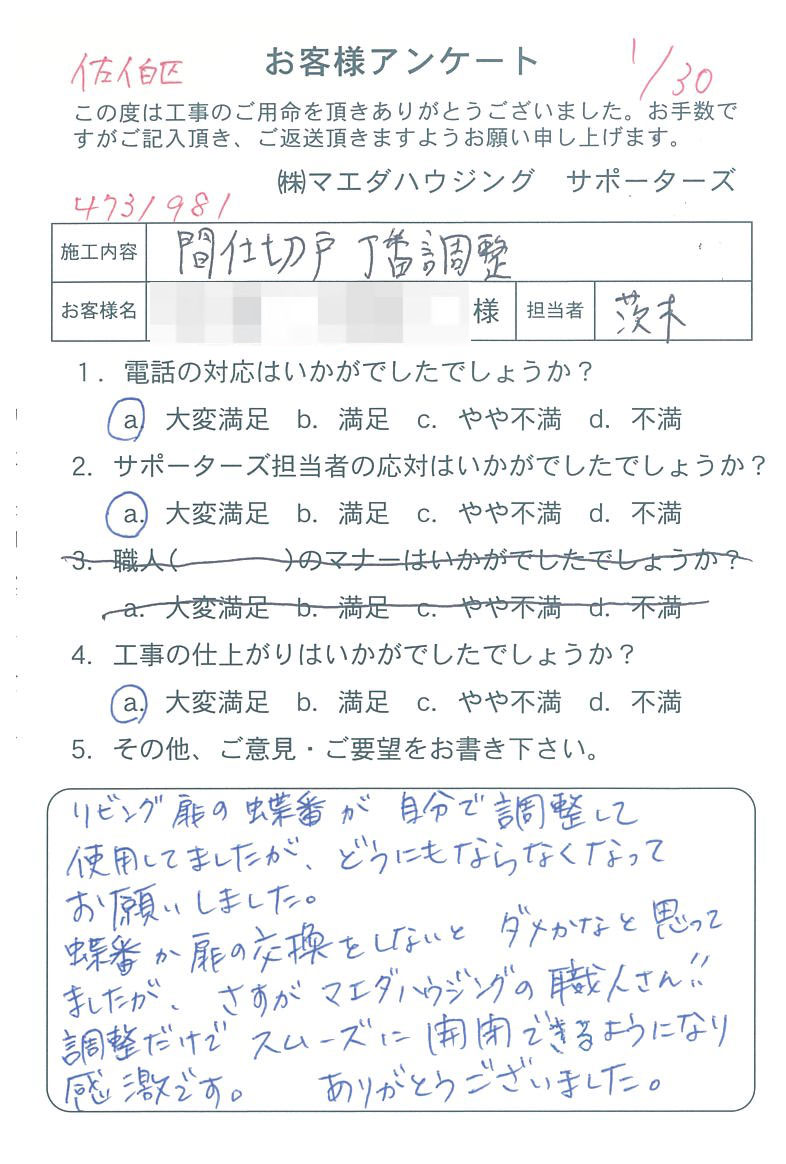 佐伯区 お客様アンケート 1/30
この度は工事のご用命を頂きありがとうございました。お手数で
すがご記入頂き、ご返送頂きますようお願い申し上げます。
㈱マエダハウジング サポーターズ
4731981
施工内容 間仕切戸 丁番調整
お客様名 様 担当者 茨木
1. 電話の対応はいかがでしたでしょうか？
a. 大変満足 b. 満足 c. やや不満 d. 不満
2. サポーターズ担当者の応対はいかがでしたでしょうか？
a. 大変満足 b. 満足 c. やや不満 d. 不満
3. 職人( )のマナーはいかがでしたでしょうか？
a. 大変満足 b. 満足 c. やや不満 d. 不満
4. 工事の仕上がりはいかがでしたでしょうか？
a. 大変満足 b. 満足 c. やや不満 d. 不満
5. その他、ご意見・ご要望をお書き下さい。
リビング扉の蝶番が 自分で調整して
使用してましたが、どうにもならなくなって
お願いしました。
蝶番か扉の交換をしないと ダメかなと思って
ましたが、さすがマエダハウジングの職人さん!!
調整だけで スムーズに開閉できるようになり
感激です。 ありがとうございました。